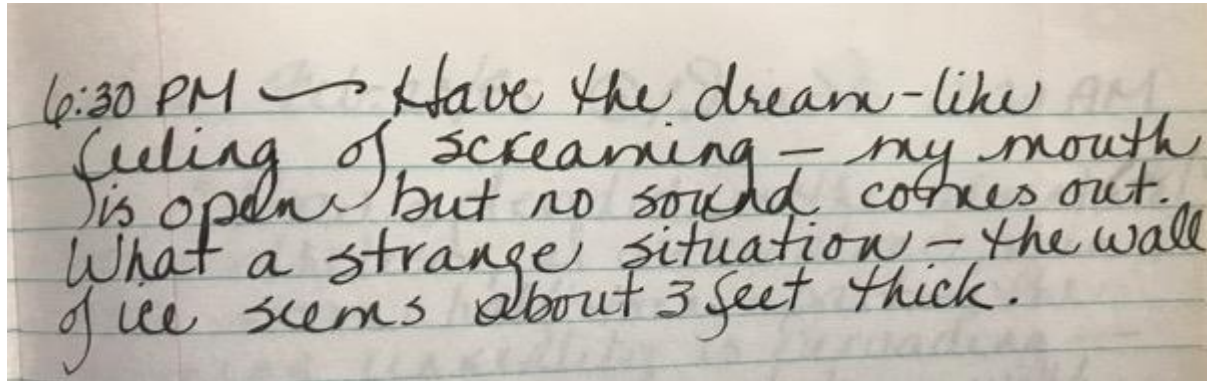 6:30 PM — Have the dream-like
feeling of screaming — my mouth
is open but no sound comes out.
What a strange situation — the wall
of ice seems about 3 feet thick.